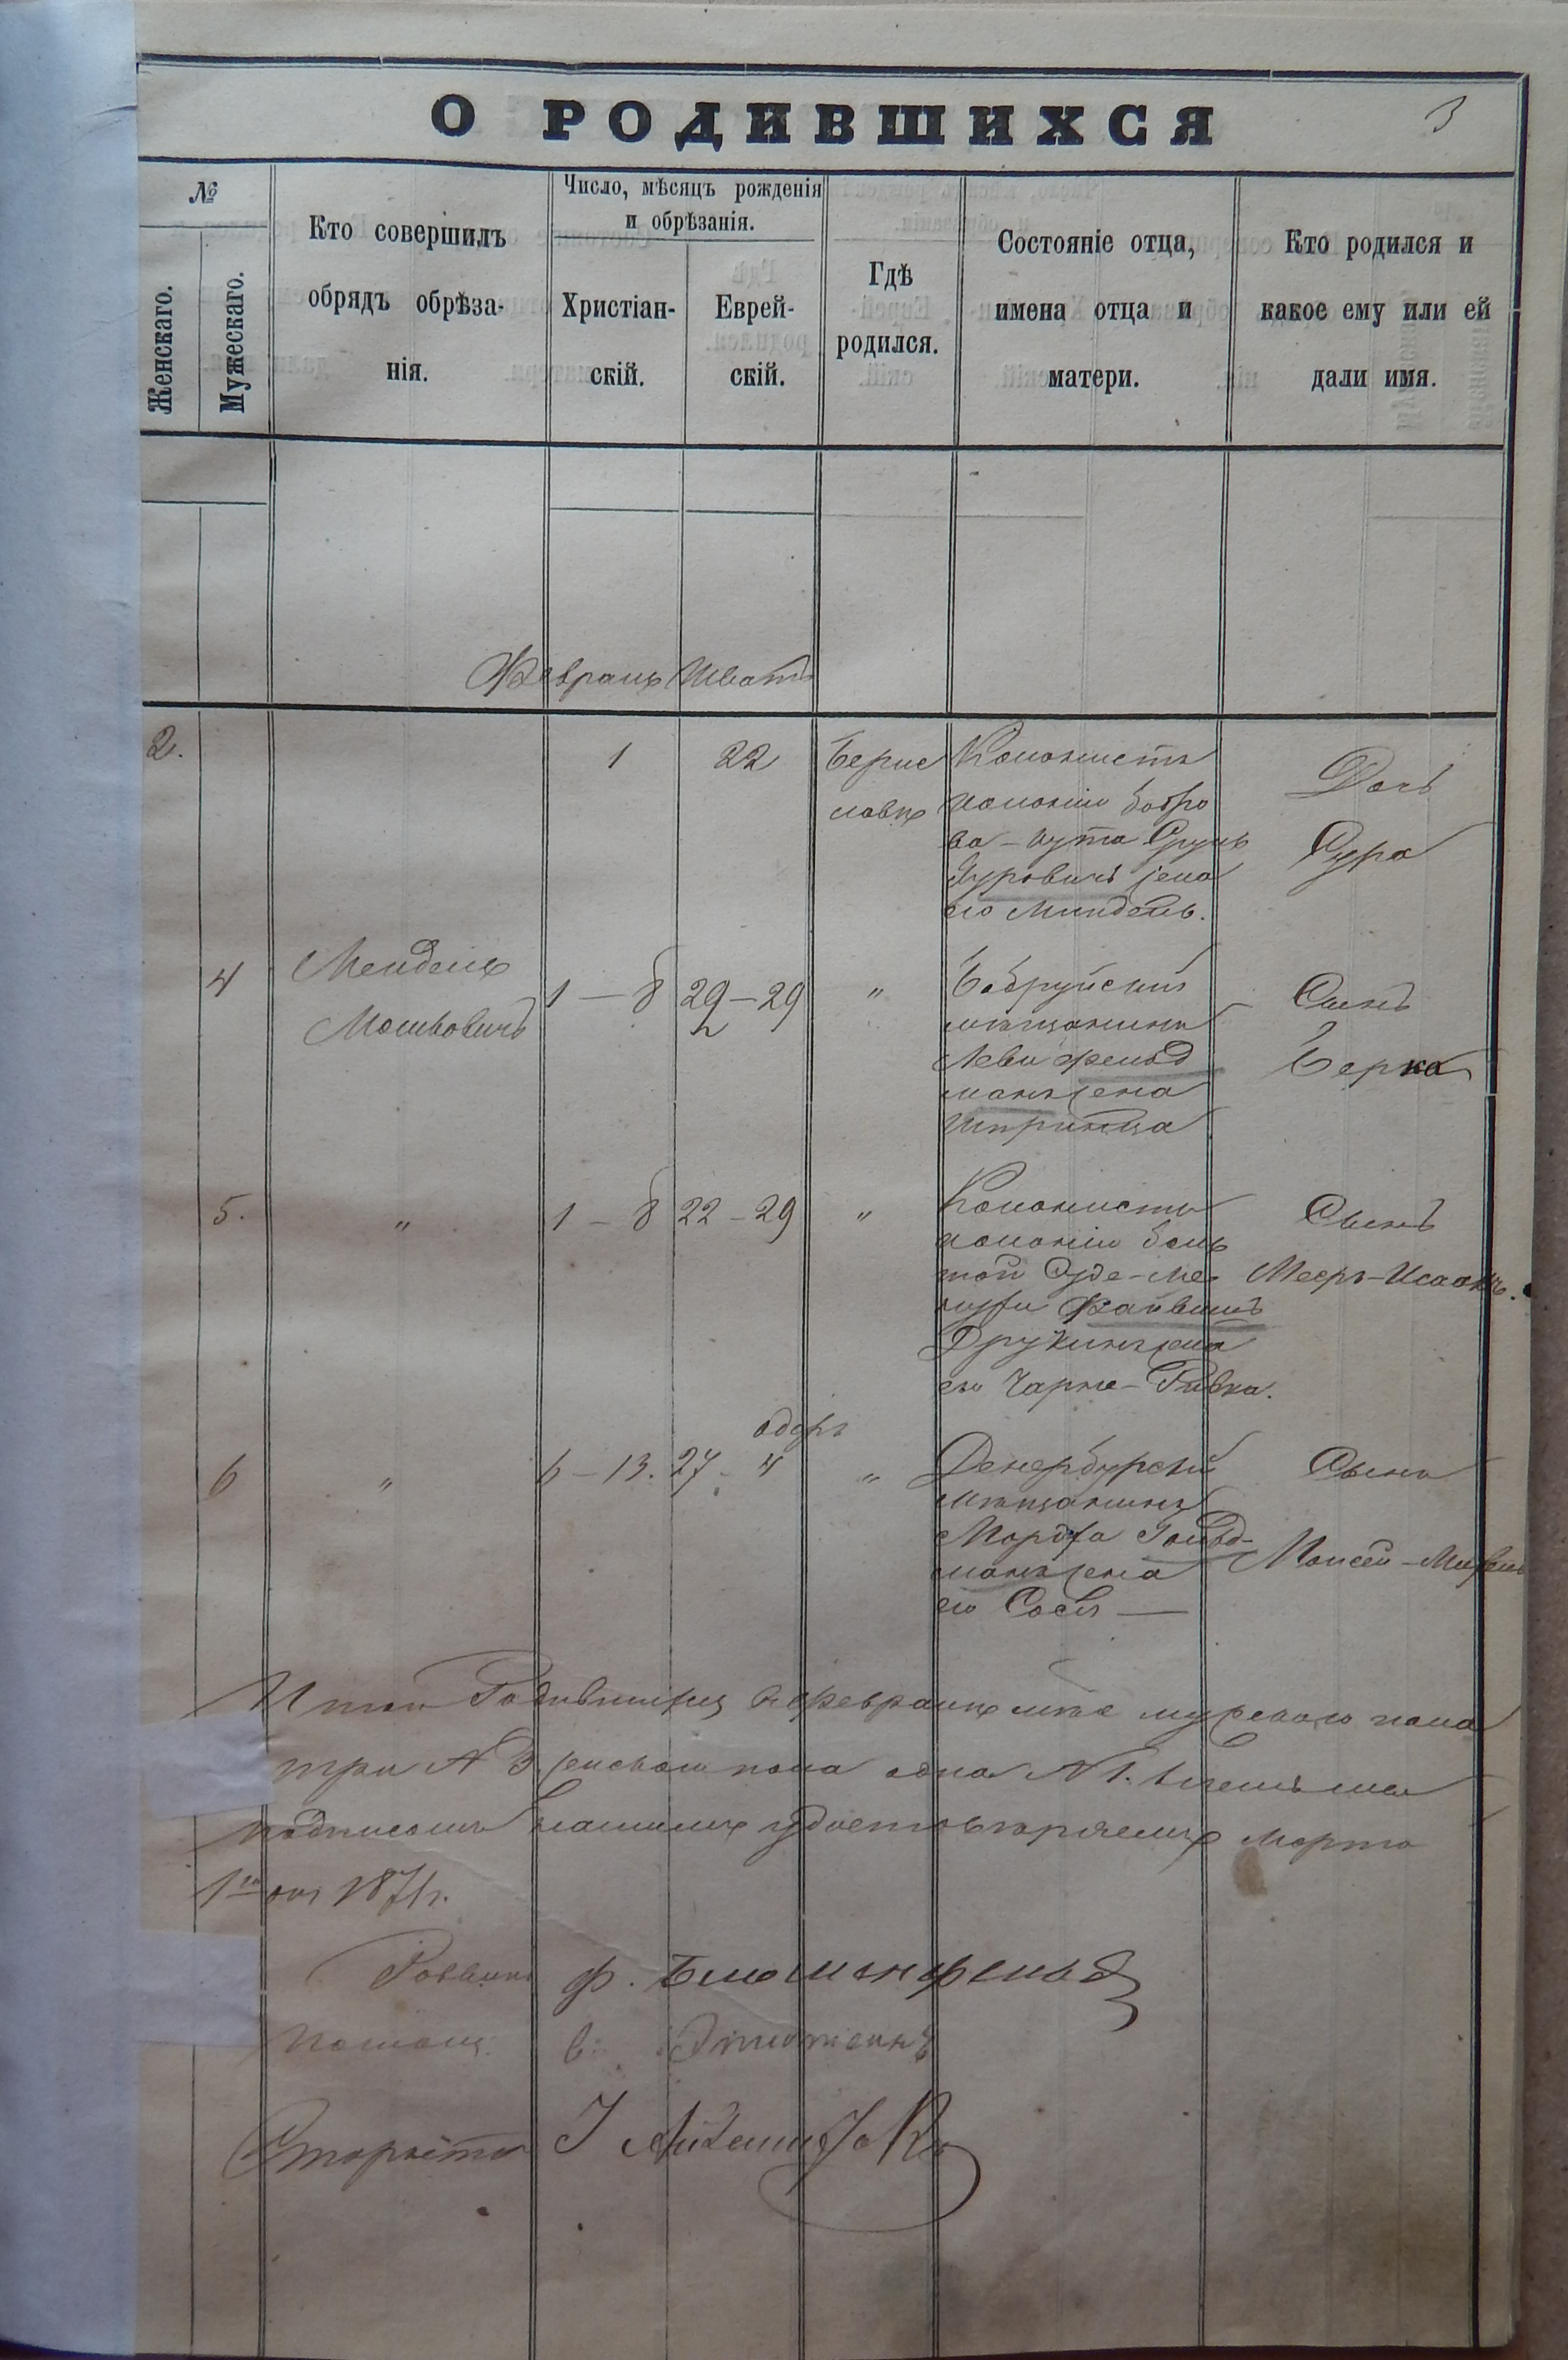 О РОДИВШИХСЯ
3
№
Женскаго.
Мужескаго.
Кто совершилъ
обрядъ обрѣза-
нія.
Число, мѣсяцъ рожденія
и обрѣзанія.
Христіан-
скій.
Еврей-
скій.
Гдѣ
родился.
Состояніе отца,
имена отца и
матери.
Кто родился и
какое ему или ей
дали имя.
Февраль Шватъ
2.
1
22
Берис
лавѣ
Колонистъ
колоніи Бобро
ва-Кута Сруль
Гуровичъ жена
его Миндель.
Дочь
Сура
4
Мендель
Мошковичъ
1 — 8
29 — 29
"
Бобруйскій
мѣщанинъ
Леви Фельд
манъ жена
Шпринца
Сынъ
Берка
5.
"
1 — 8
22 — 29
"
Колонистъ
колоніи Боль
шой Сейде-Ме-
нухи
жена
его Чарне-Ривка.
Сынъ
Мееръ-Исаакъ.
6
"
6 — 13.
адаръ
27 - 4
"
Денербурскій
мѣщанинъ
Мордха Гольд-
манъ жена
его Сося —
Сынъ
Моисей-Михель
Итого Родившихся въ Февралѣ м-цѣ мужскаго пола
три № 3 женскаго пола одна № 1.
подписомъ нашимъ удостовѣряемъ Марта
1го дня 1871 г.
Раввинъ Ф. Блюменфельд
Помощ.
Староста